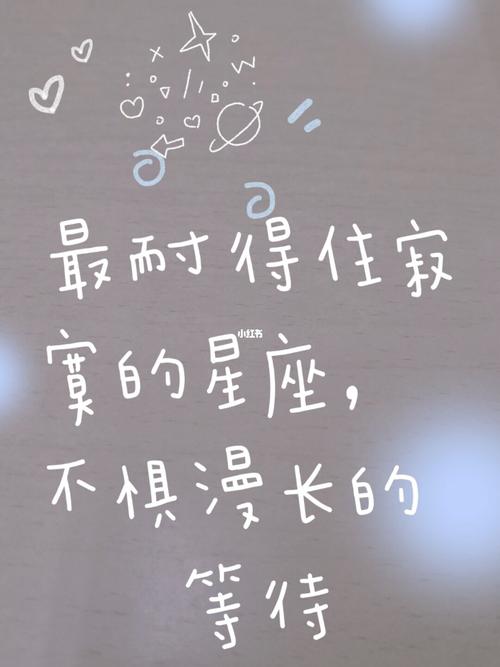 最耐得住寂
小红书
寞的星座，
不惧漫长的
等待